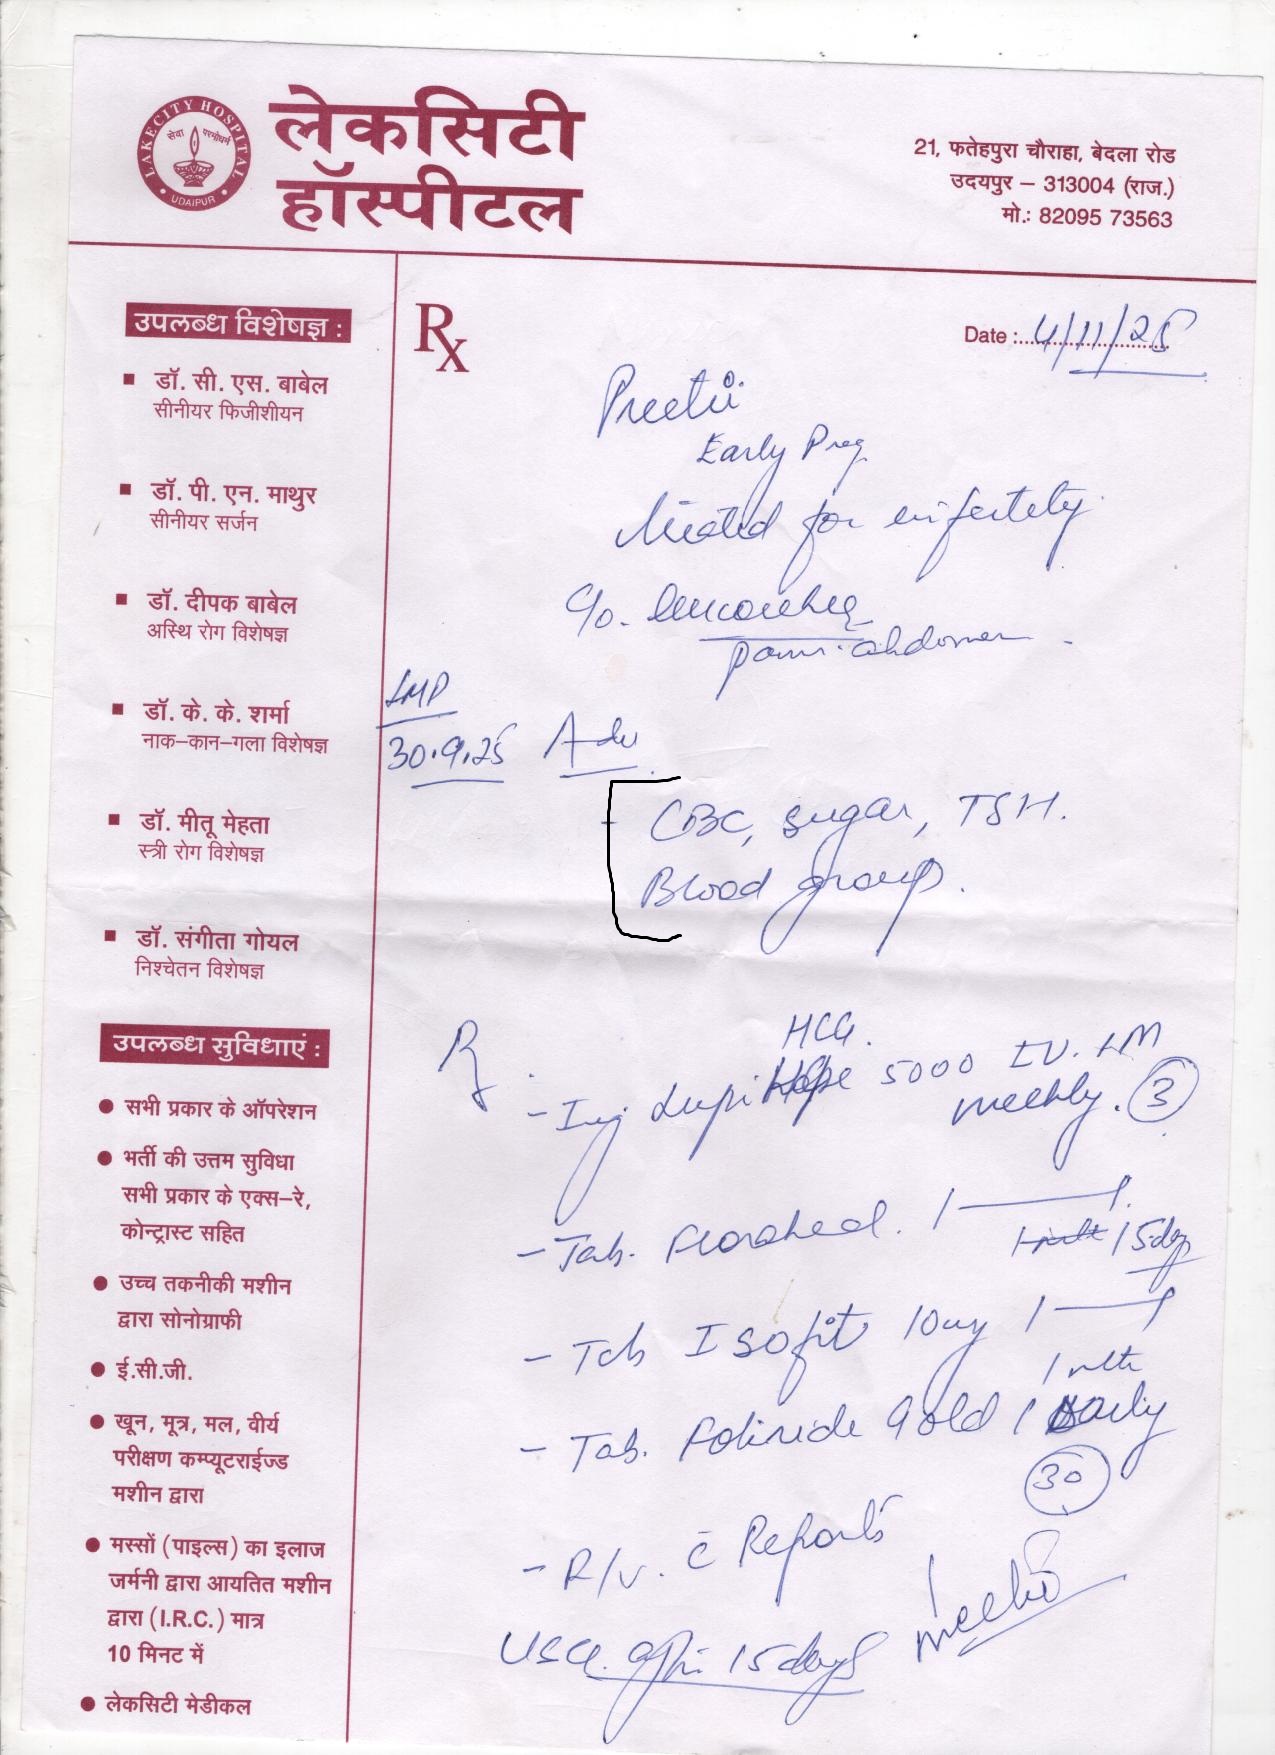 LAKECITY HOSPITAL
सेवा परमोधर्म
UDAIPUR
लेकसिटी
हॉस्पीटल
21, फतेहपुरा चौराहा, बेदला रोड
उदयपुर – 313004 (राज.)
मो.: 82095 73563
उपलब्ध विशेषज्ञ :
डॉ. सी. एस. बाबेल
सीनीयर फिजीशीयन
डॉ. पी. एन. माथुर
सीनीयर सर्जन
डॉ. दीपक बाबेल
अस्थि रोग विशेषज्ञ
डॉ. के. के. शर्मा
नाक–कान–गला विशेषज्ञ
डॉ. मीतू मेहता
स्त्री रोग विशेषज्ञ
डॉ. संगीता गोयल
निश्चेतन विशेषज्ञ
उपलब्ध सुविधाएं :
सभी प्रकार के ऑपरेशन
भर्ती की उत्तम सुविधा
सभी प्रकार के एक्स–रे,
कोन्ट्रास्ट सहित
उच्च तकनीकी मशीन
द्वारा सोनोग्राफी
ई.सी.जी.
खून, मूत्र, मल, वीर्य
परीक्षण कम्प्यूटराईज्ड
मशीन द्वारा
मस्सों (पाइल्स) का इलाज
जर्मनी द्वारा आयतित मशीन
द्वारा (I.R.C.) मात्र
10 मिनट में
लेकसिटी मेडीकल
Rx
Date : 4/11/25
Preeti
Early Preg
treated for infertility
c/o. leucorrhea
pain abdomen
LMP
30.9.25
Adv
- CBC, sugar, TSH.
Blood group.
Rx
HCG.
- Inj 5000 IU. IM
weekly. 3
- Tab. 1 — 1
15 day
- Tab Isofit 10mg 1 — 1
1 mth
- Tab. Gold 1 daily
30
- R/v. c̄ Reports
USG. after 15 days